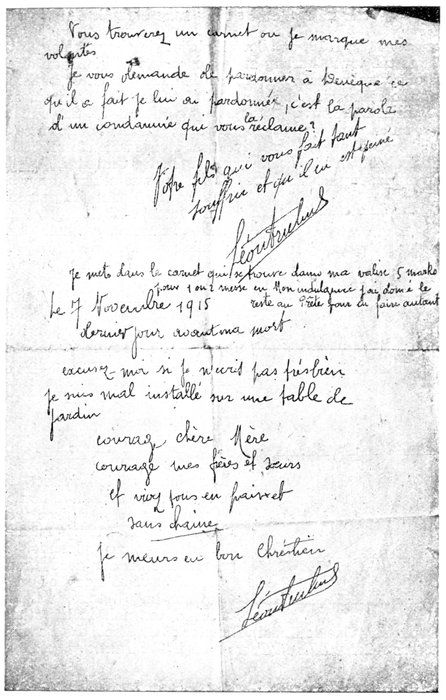 Vous trouverez un carnet ou je marque mes
volontés
je vous demande de pardonner à ce
qu'il a fait je lui ai pardonné, c'est la parole
d'un condamnée qui vous la réclame
Votre fils qui vous fait tant
souffrir et qu'il en est peiné
Léon Trulin
Je mets dans le carnet qui se trouve dans ma valise 5 marks
pour 1 ou 2 messe en mon indulgence j'ai donné le
reste au Prêtre pour en faire autant
Le 7 Novembre 1915
dernier jour avant ma mort
excusez moi si je n'ecrit pas très bien
je suis mal installé sur une table de
jardin
courag chère Mère
courage mes frères et sœurs
et vivez tous en paix et
sans haine
je meurs en bon Chrêstien
Léon Trulin